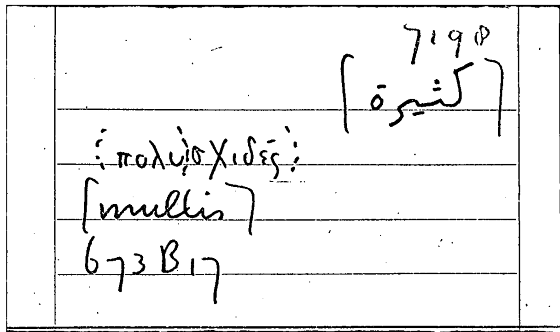 7198
[كثيرة]
⋮πολυ⋮σχιδές⋮
[multis]
673B17